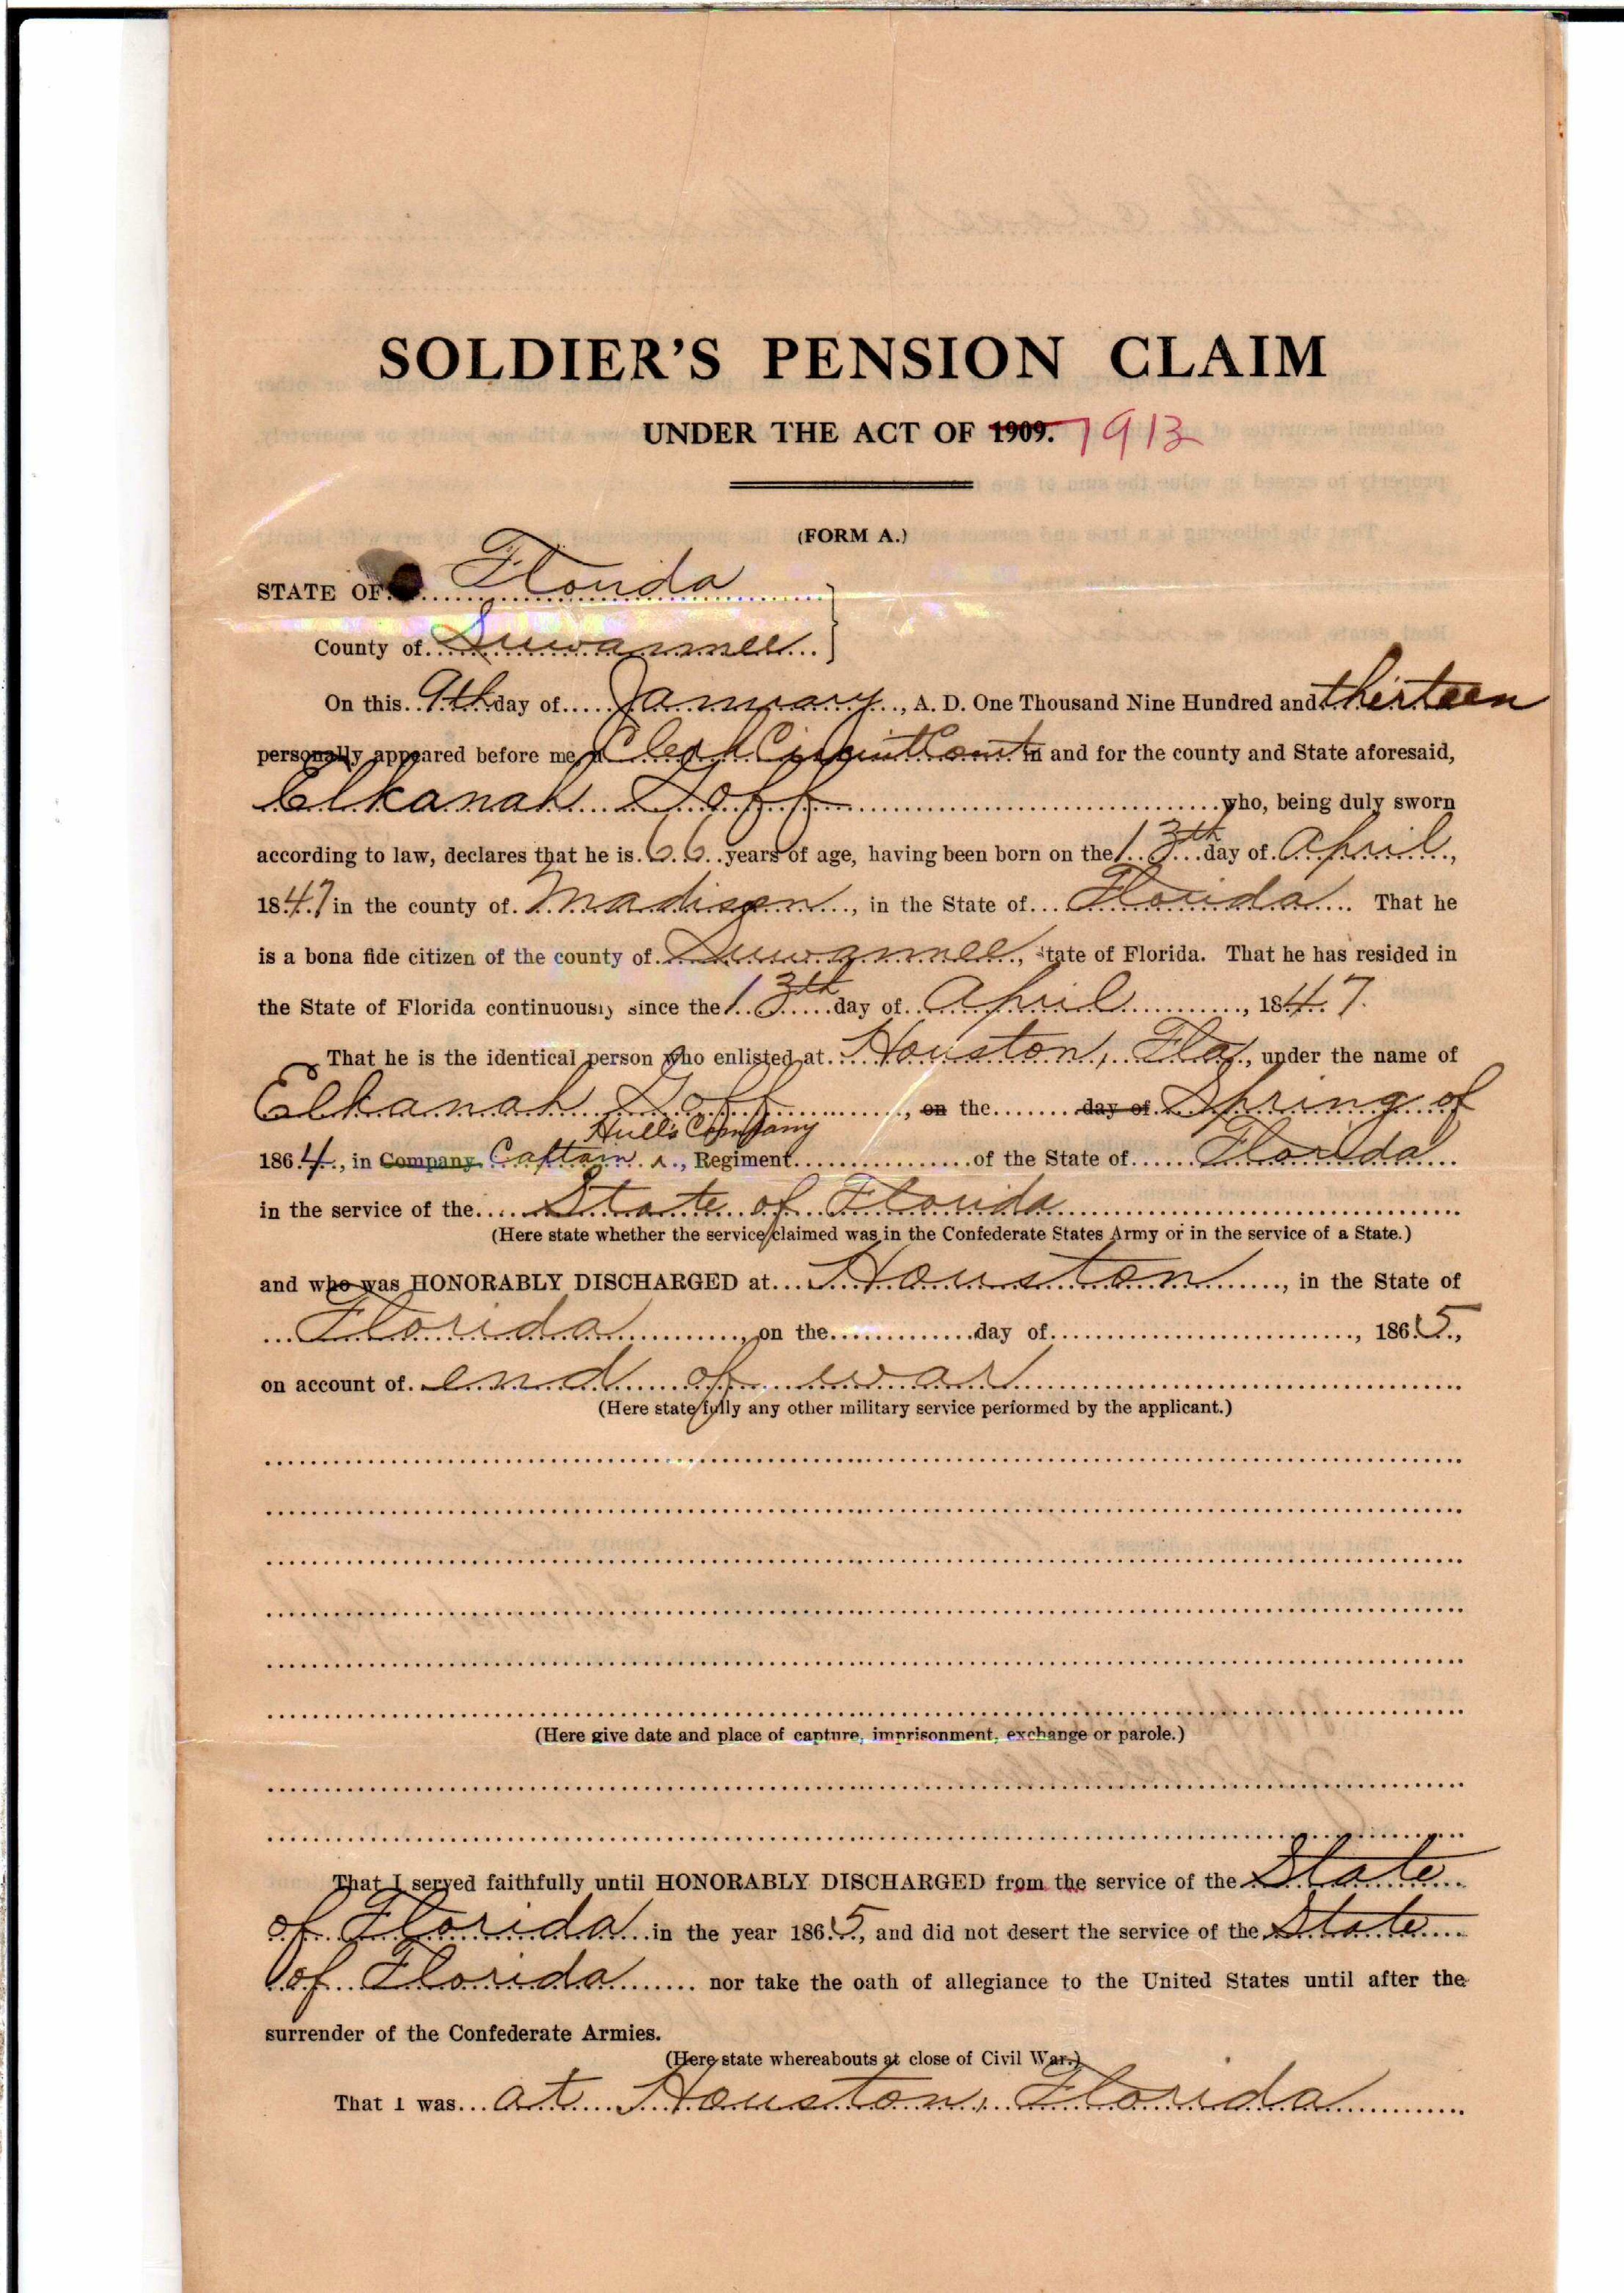 SOLDIER'S PENSION CLAIM
UNDER THE ACT OF 1909. 1913
(FORM A.)
STATE OF Florida
County of Suwannee
On this 9th day of January, A. D. One Thousand Nine Hundred and thirteen
personally appeared before me, a Clerk Circuit Court in and for the county and State aforesaid,
Elkanah Goff who, being duly sworn
according to law, declares that he is 66 years of age, having been born on the 13th day of April,
1847 in the county of Madison, in the State of Florida. That he
is a bona fide citizen of the county of Suwannee, State of Florida. That he has resided in
the State of Florida continuously since the 13th day of April, 1847.
That he is the identical person who enlisted at Houston, Fla, under the name of
Elkanah Goff, on the day of Spring of
Hull's Company
1864, in Company Captain, Regiment of the State of Florida
in the service of the State of Florida
(Here state whether the service claimed was in the Confederate States Army or in the service of a State.)
and who was HONORABLY DISCHARGED at Houston, in the State of
Florida, on the day of, 1865,
on account of end of war
(Here state fully any other military service performed by the applicant.)
(Here give date and place of capture, imprisonment, exchange or parole.)
That I served faithfully until HONORABLY DISCHARGED from the service of the State
of Florida in the year 1865, and did not desert the service of the State
of Florida nor take the oath of allegiance to the United States until after the
surrender of the Confederate Armies.
(Here state whereabouts at close of Civil War.)
That I was at Houston, Florida